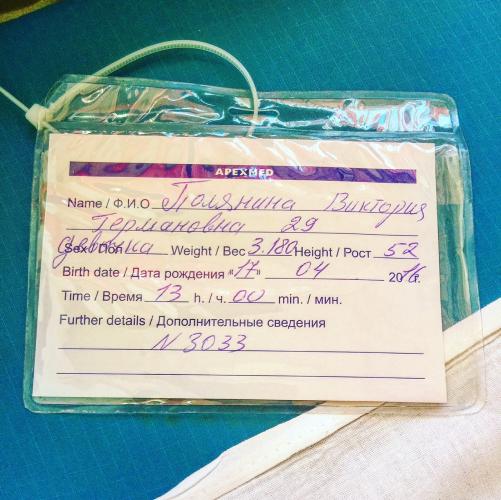 APEXMED
Name / Ф.И.О Полянина Виктория
Германовна 29
Sex / Пол девочка Weight / Вес 3.180 Height / Рост 52
Birth date / Дата рождения «17» 04 2016г.
Time / Время 13 h. / ч. 00 min. / мин.
Further details / Дополнительные сведения
N 3033